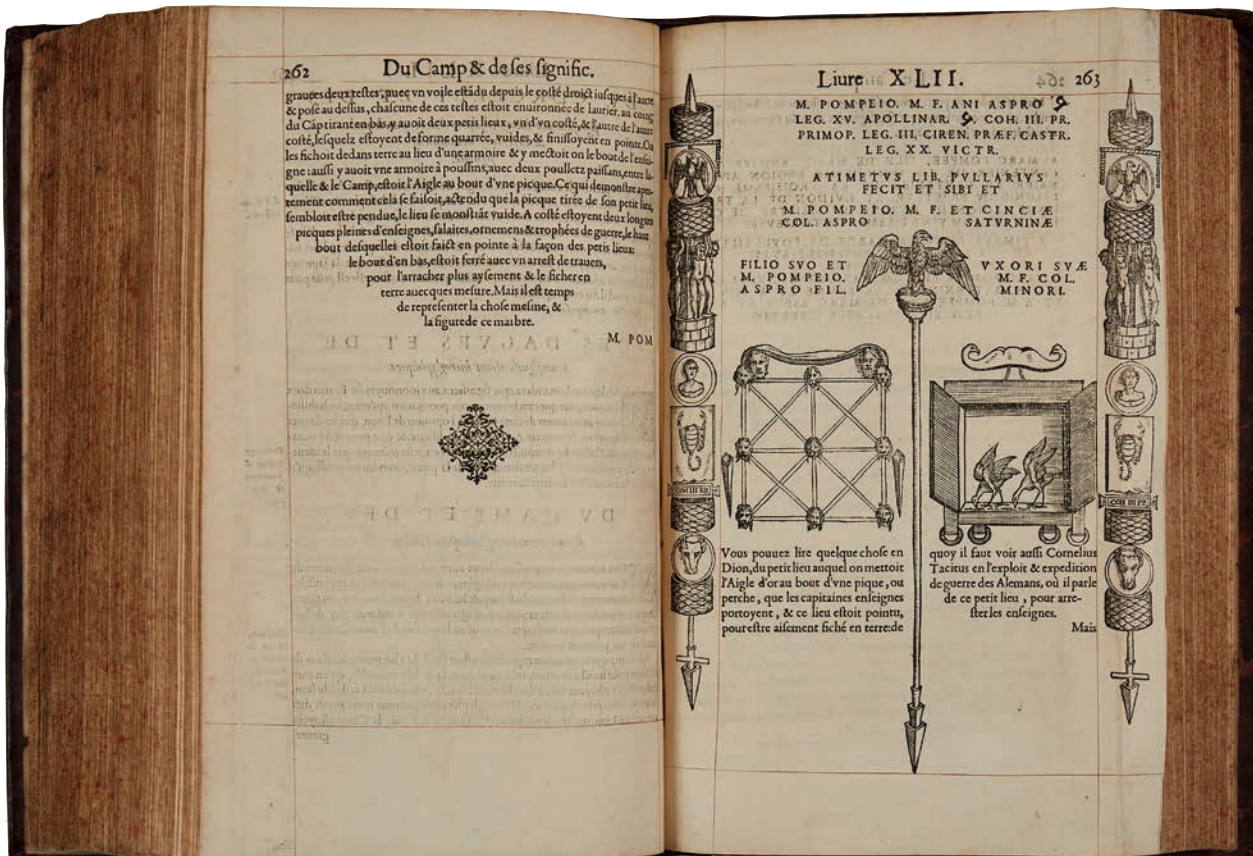 262 Du Camp & de ses signific.
grauees deux testes, auec vn voile estãdu depuis le costé droict iusques à l'autre
& posé au dessus, chascune de ces testes estoit enuironnée de laurier. au coing
du Cãp tirant en bas, y auoit deux petis lieux, vn d'vn costé, & l'autre de l'autre
costé, lesquelz estoyent de forme quarrée, vuides, & finissoyent en pointe. On
les fichoit dedans terre au lieu d'une armoire & y mectoit on le bout de l'ensei-
gne: aussi y auoit vne armoire à poussins, auec deux poulletz paissans, entre la-
quelle & le Camp, estoit l'Aigle au bout d'vne picque. Ce qui demonstre aper-
tement comment cela se faisoit, actendu que la picque tirée de son petit lieu,
sembloit estre pendue, le lieu se monstrãt vuide. A costé estoyent deux longues
picques pleines d'enseignes, salaires, ornemens & trophées de guerre, le haut
bout desquelles estoit faict en pointe à la façon des petis lieux:
le bout d'en bas, estoit ferré auec vn arrest de trauers,
pour l'arracher plus aysement & le ficher en
terre auecques mesure. Mais il est temps
de representer la chose mesme, &
la figure de ce marbre.
M. POM
Liure XLII. 263
M. POMPEIO. M. F. ANI ASPRO
LEG. XV. APOLLINAR. COH. III. PR.
PRIMOP. LEG. III. CIREN. PRÆF. CASTR.
LEG. XX. VICTR.
ATIMETVS LIB. PVLLARIVS
FECIT ET SIBI ET
M. POMPEIO. M. F. ET CINCIÆ
COL. ASPRO SATVRNINÆ
FILIO SVO ET VXORI SVÆ
M. POMPEIO. M. F. COL.
ASPRO FIL. MINORI.
COH III PR
COH III PR
Vous pouuez lire quelque chose en
Dion, du petit lieu auquel on mettoit
l'Aigle d'or au bout d'vne pique, ou
perche, que les capitaines enseignes
portoyent, & ce lieu estoit pointu,
pour estre aisement fiché en terre: de
quoy il faut voir aussi Cornelius
Tacitus en l'exploit & expedition
de guerre des Alemans, où il parle
de ce petit lieu, pour arre-
ster les enseignes.
Mais